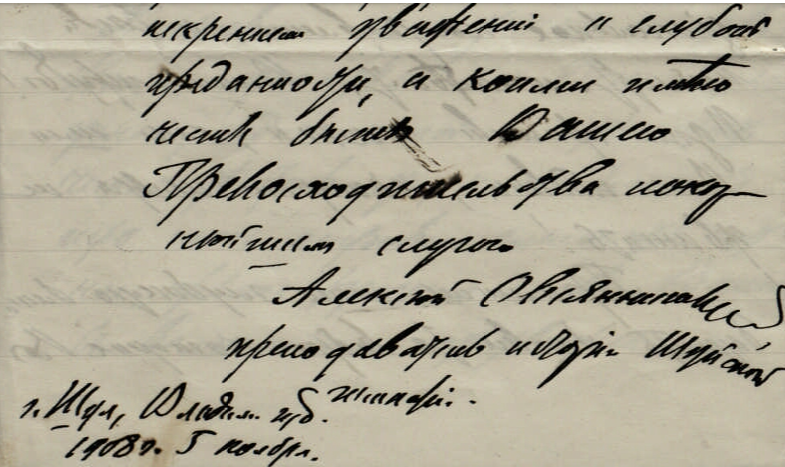 искреннем уваженіи и глубокой
преданности, с коими имѣю
честь быть Вашего
Превосходительства покор-
нѣйшим слугою
Алексѣй Овсянников
преподаватель исторіи Шуйской
гимназіи.
г. Шуя, Владим. губ.
1908 г. 5 ноября.